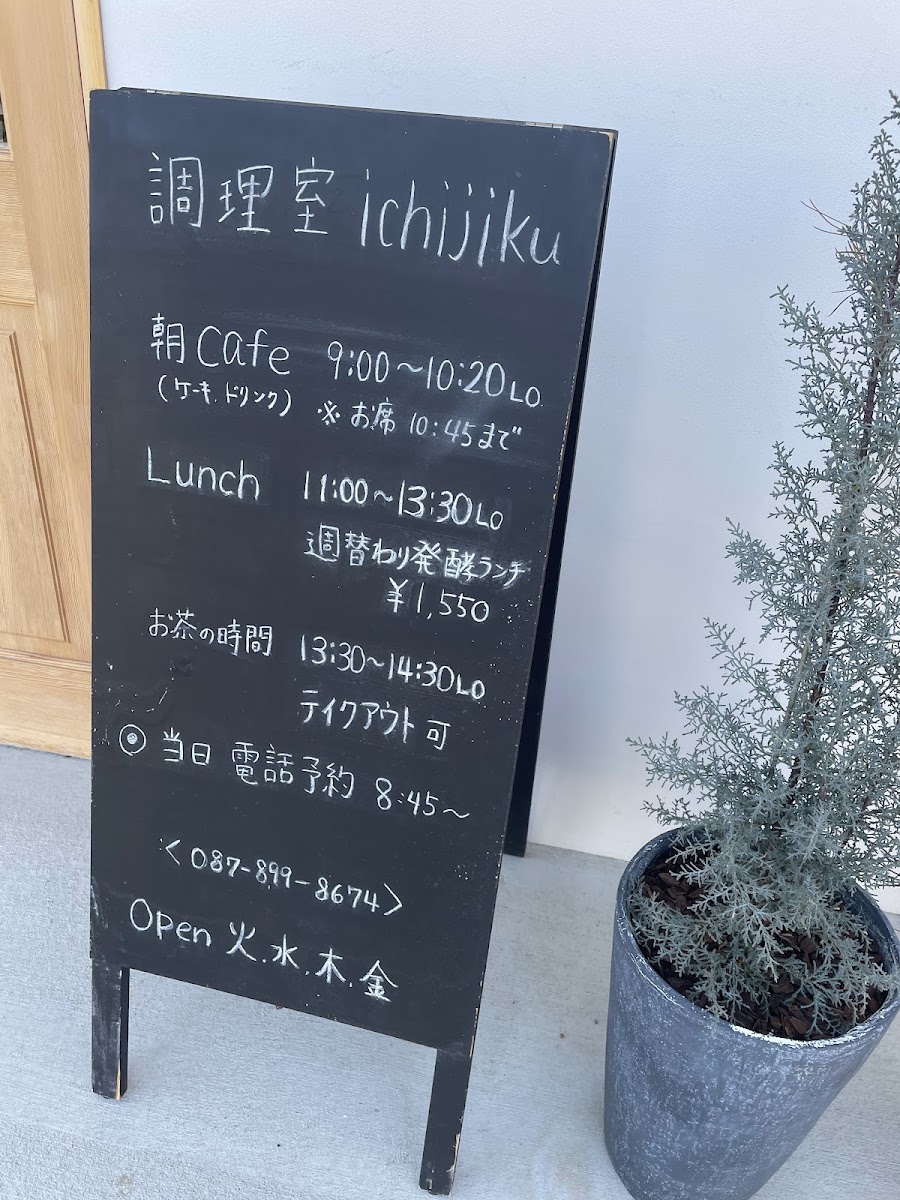 調理室 ichijiku
朝 cafe 9:00〜10:20 LO
(ケーキ.ドリンク) ※お席 10:45まで
Lunch 11:00〜13:30 LO
週替わり発酵ランチ
¥1,550
お茶の時間 13:30〜14:30 LO
テイクアウト可
◎ 当日 電話予約 8:45〜
<087-899-8674>
Open 火.水.木.金